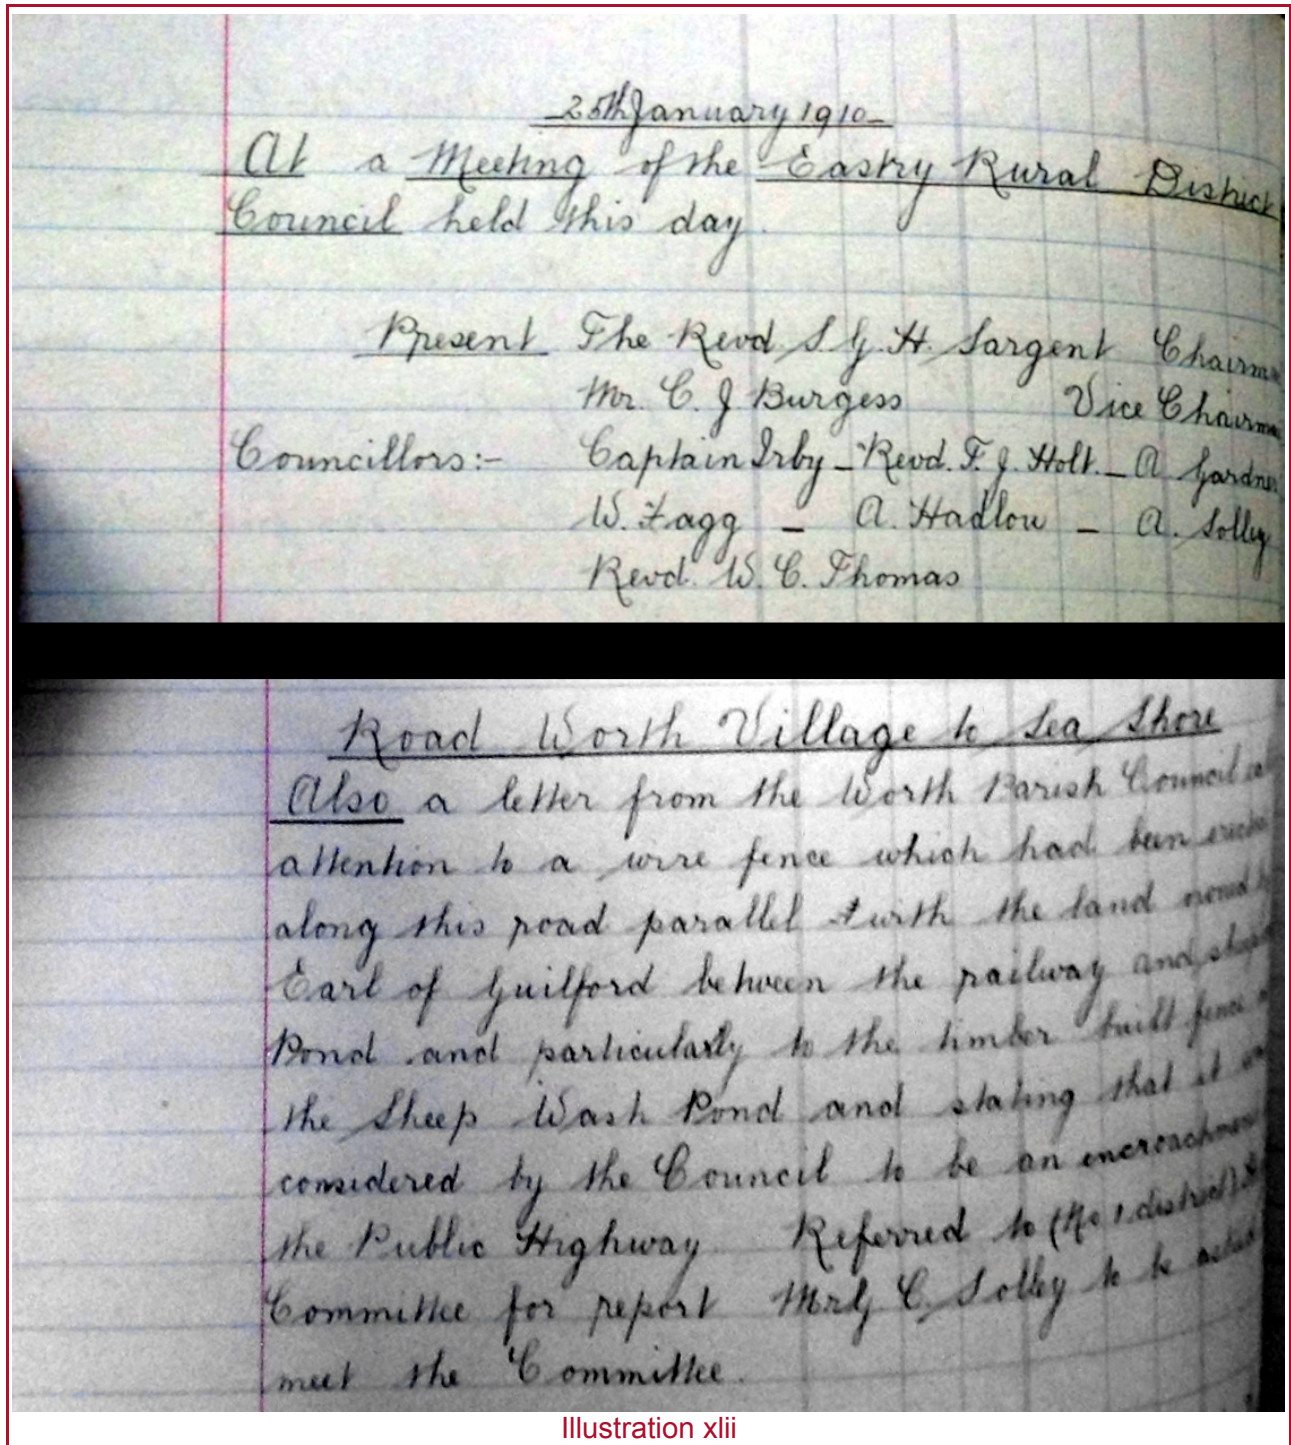 25th January 1910
At a Meeting of the Eastry Rural District
Council held this day.
Present The Revd S. G. H. Sargent Chairma
Mr. C. J Burgess Vice Chairma
Councillors:- Captain Irby - Revd. F. J. Holt. - A Gardner
W. Fagg - A. Hadlow - A. Solley
Revd. W. C. Thomas
Road Worth Village to Sea Shore
Also a letter from the Worth Parish Council
attention to a wire fence which had been erected
along this road parallel with the land
Earl of Guilford between the railway and
Pond and particularly to the timber built fence
the Sheep Wash Pond and stating that it
considered by the Council to be an encroachment
the Public Highway Referred to (No 1 district)
Committee for report Mr G C. Solley to be asked
meet the Committee.
Illustration xlii